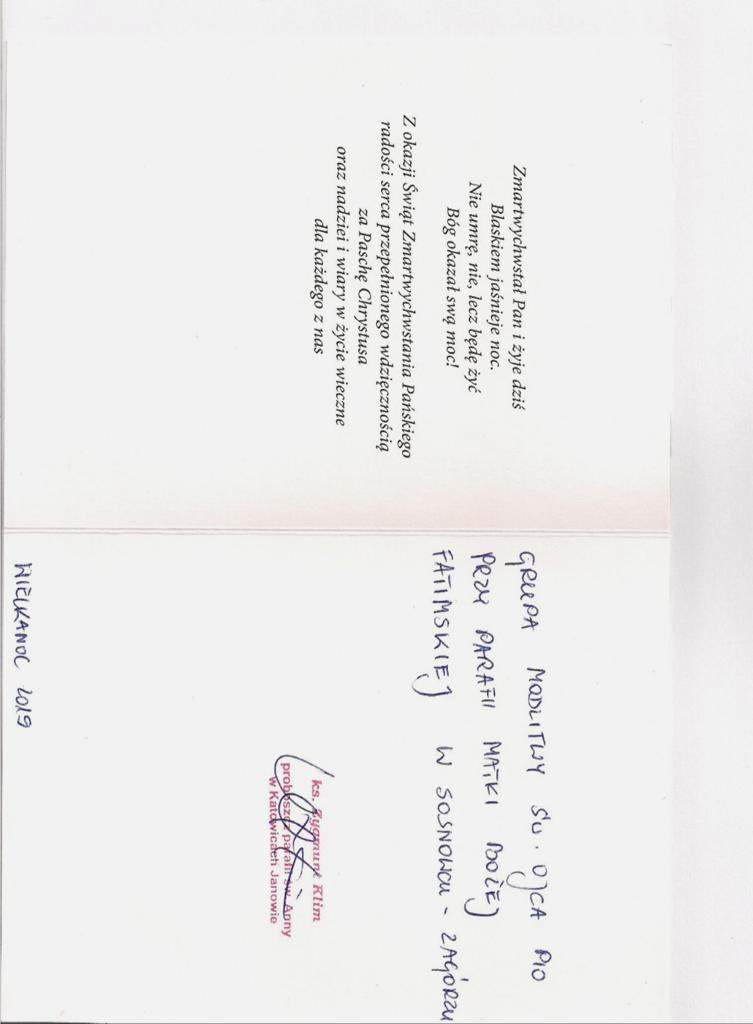 Zmartwychwstał Pan i żyje dziś
Blaskiem jaśnieje noc.
Nie umrę, nie, lecz będę żyć
Bóg okazał swą moc!
Z okazji Świąt Zmartwychwstania Pańskiego
radości serca przepełnionego wdzięcznością
za Paschę Chrystusa
oraz nadziei i wiary w życie wieczne
dla każdego z nas
GRUPA MODLITWY ŚW. OJCA PIO
PRZY PARAFII MATKI BOŻEJ
FATIMSKIEJ W SOSNOWCU - ZAGÓRZU
ks. Zygmunt Klim
proboszcz parafii św. Anny
w Katowicach Janowie
WIELKANOC 2019